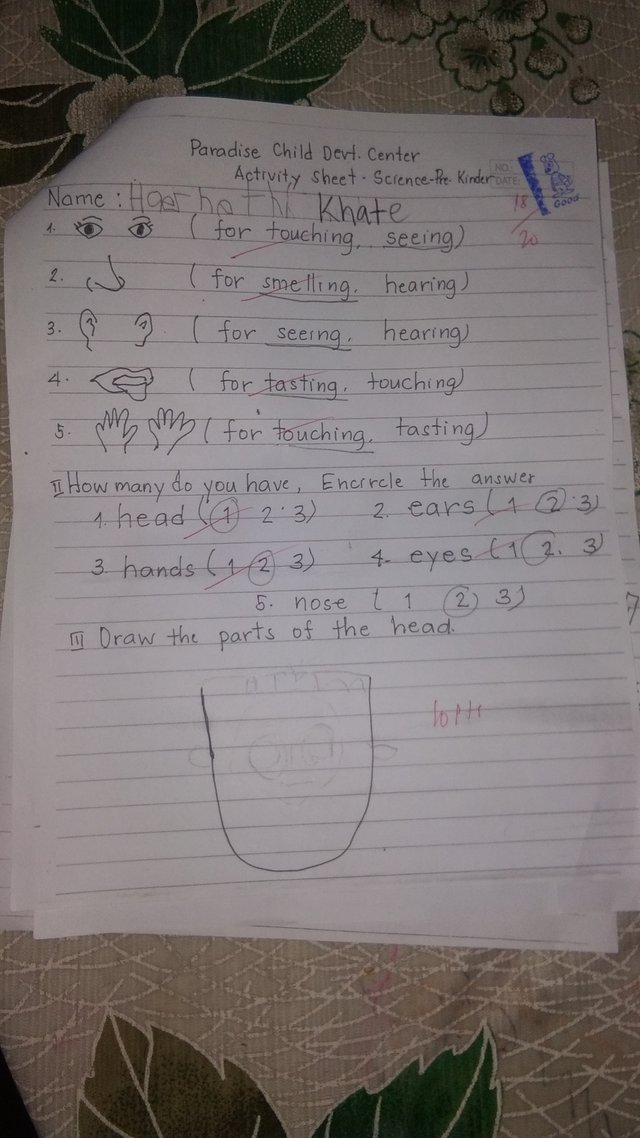 Paradise Child Devt. Center
Activity Sheet - Science-Pre. Kinder
NO.
DATE:
GOOD
Name : Khate
18
20
1. ( for touching, seeing)
2. ( for smelling, hearing)
3. ( for seeing, hearing)
4. ( for tasting, touching)
5. ( for touching, tasting)
II How many do you have, Encircle the answer
1. head ( 1 2. 3) 2. ears ( 1 2. 3)
3 hands ( 1 2 3) 4. eyes ( 1 2. 3)
5. nose ( 1 2) 3)
III Draw the parts of the head.
10pts